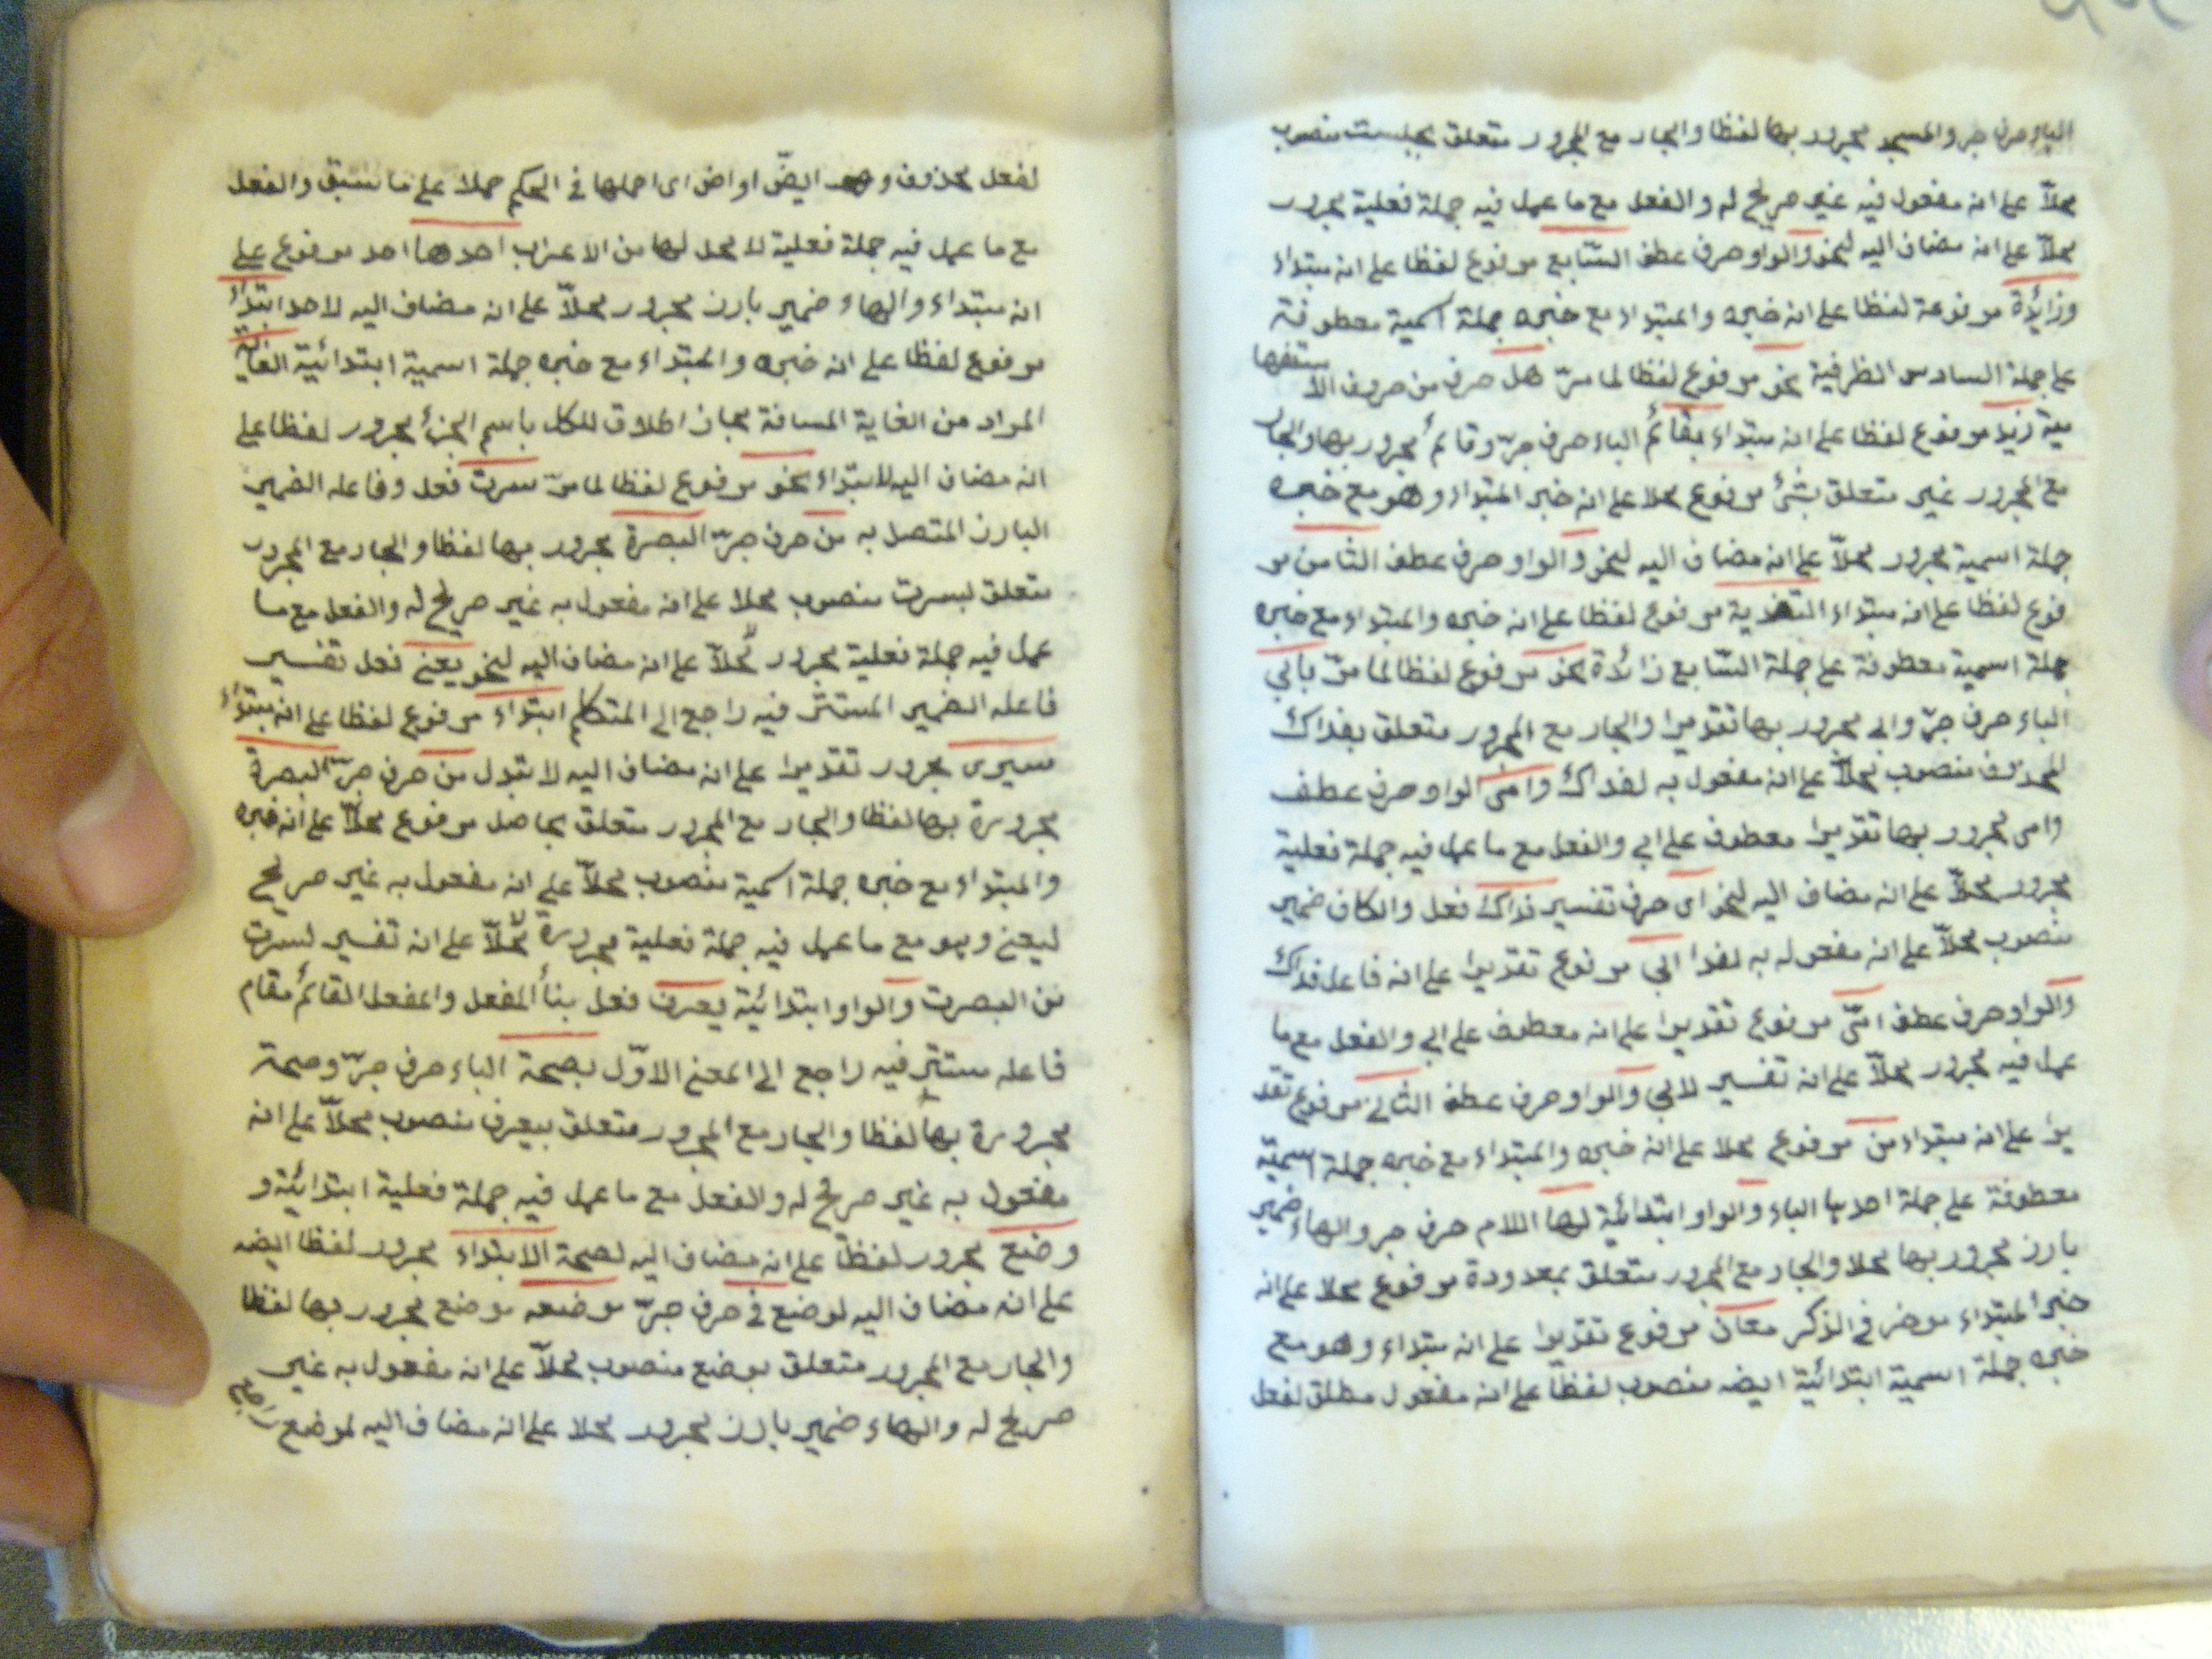 الباء حرف جر والمسجد مجرور بها لفظا والجار مع المجرور متعلق بجلست منصوب
محلاّ على انه مفعول فيه غير صريح له والفعل مع ما عمل فيه جملة فعلية مجرور
محلاّ على انه مضاف اليه لنحو والواو حرف عطف السّابع مرفوع لفظا على انه مبتداء
وزائدة مرفوعة لفظا على انه خبره والمبتداء مع خبره جملة اسمية معطوفة
على جملة السادس الظرفية نحو مرفوع لفظا لما مرّ هل حرف من حروف الاستفها
مية زيد مرفوع لفظا على انه مبتداء بقائم الباء حرف جرّ وقائم مجرور بها والجار
مع المجرور غير متعلق بشئ مرفوع محلا على انه خبر المبتداء وهو مع خبره
جملة اسمية مجرور محلاّ على انه مضاف اليه لنحو والواو حرف عطف الثامن مر
فوع لفظا على انه مبتداء التفدية مرفوع لفظا على انه خبره والمبتداء مع خبره
جملة اسمية معطوفة على جملة السّابع زائدة نحو مرفوع لفظا لما مرّ بابي
الباء حرف جرّ وابى مجرور بها تقديرا والجار مع المجرور متعلق بفداك
المحذوف منصوب محلاّ على انه مفعول به لفداك وامّى الواو حرف عطف
وامى مجرور بها تقديرا معطوف على ابي والفعل مع ما عمل فيه جملة فعلية
مجرور محلاّ على انه مضاف اليه لنحو اى حرف تفسير فداك فعل والكاف ضمير
منصوب محلاّ على انه مفعول به لفدا ابي مرفوع تقديرا على انه فاعل فداك
والواو حرف عطف امّى مرفوع تقديرا على انه معطوف على ابي والفعل مع ما
عمل فيه مجرور محلاّ على انه تفسير لابي والواو حرف عطف الثانى مرفوع تقد
يرا على انه مبتداء من مرفوع محلا على انه خبره والمبتداء مع خبره جملة اسميّة
معطوفة على جملة احدها الباء والواو ابتدائية لها اللام حرف جر والهاء ضمير
بارز مجرور بها محلا والجار مع المجرور متعلق بمعدودة مرفوع محلا على انه
خبر المبتداء موخر في الذكر معان مرفوع تقديرا على انه مبتداء وهو مع
خبره جملة اسمية ابتدائية ايضه منصوب لفظا على انه مفعول مطلق لفعل
لفعل محذوف وهو ايضّ او اض اى احملها في الحكم حملا على ما سبق والفعل
مع ما عمل فيه جملة فعلية لا محل لها من الاعراب احدها احد مرفوع على
انه مبتداء والهاء ضمير بارز مجرور محلاّ على انه مضاف اليه لاحد ابتداء
مرفوع لفظا على انه خبره والمبتداء مع خبره جملة اسمية ابتدائية الغاية
المراد من الغاية المسافة مجاز اطلاق للكل باسم الجزء مجرور لفظا على
انه مضاف اليه لابتداء نحو مرفوع لفظا لما مرّ سرت فعل وفاعله الضمير
البارز المتصل به من حرف جرّ البصرة مجرور بها لفظا والجار مع المجرور
متعلق لسرت منصوب محلا على انه مفعول به غير صريح له والفعل مع ما
عمل فيه جملة فعلية مجرور محلاّ على انه مضاف اليه لنحو يعنى فعل تفسير
فاعله الضمير المستتر فيه راجع الى المتكلم ابتداء مرفوع لفظا على انه مبتداء
سيرى مجرور تقديرا على انه مضاف اليه لابتدل من حرف جرّ البصرة
مجرورة بها لفظا والجار مع المجرور متعلق بحاصل مرفوع محلاّ على انه خبره
والمبتداء مع خبره جملة اسمية منصوب محلاّ على انه مفعول به غير صريح
ليعنى وهو مع ما عمل فيه جملة فعلية مجرورة محلاّ على انه تفسير لسرت
من البصرت والواو ابتدائية يعرف فعل بناء المفعل والمفعل القائم مقام
فاعله مستتر فيه راجع الى المعنى الاوّل بصحة الباء حرف جرّ وصحة
مجرورة بها لفظا والجار مع المجرور متعلق بيعرف منصوب محلاّ على انه
مفعول به غير صريح له والفعل مع ما عمل فيه جملة فعلية ابتدائية و
وضع مجرور لفظا على انه مضاف اليه لصحة الابتداء مجرور لفظا ايضه
على انه مضاف اليه لوضع في حرف جرّ موضعه موضع مجرور بها لفظا
والجار مع المجرور متعلق بوضع منصوب محلاّ على انه مفعول به غير
صريح له والهاء ضمير بارز مجرور محلا على انه مضاف اليه لموضع راجع